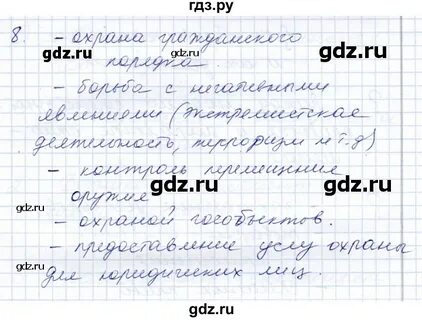 гдз.ру
8. - охрана гражданского
порядка.
- борьба с негативными
явлениями (экстремистская
деятельность, терроризм и т.д)
- контроль перемещение
оружие
- охраной гособъектов.
- предоставление услу охраны
для юридических лиц.
gdz.ru gdz.ru
gdz.ru gdz.ru
gdz.ru gdz.ru
gdz.ru gdz.ru